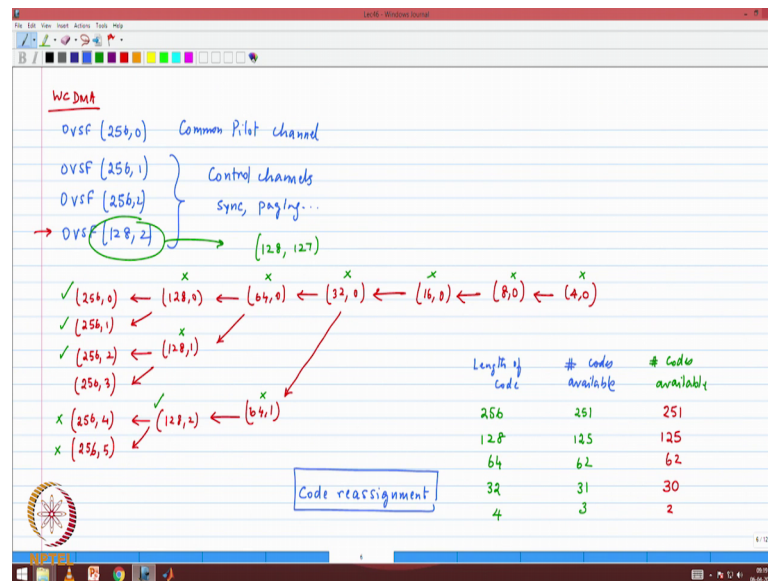 Lec46 - Windows Journal
File Edit View Insert Actions Tools Help
B I
WCDMA
OVSF (256,0) Common Pilot channel
OVSF (256,1)
OVSF (256,2)
OVSF (128,2)
Control channels
sync, paging...
(128, 127)
x x x x x x
✓ (256,0) ← (128,0) ← (64,0) ← (32,0) ← (16,0) ← (8,0) ← (4,0)
✓ (256,1)
✓ (256,2) ← (128,1) x
(256,3)
x (256,4) ← (128,2) ✓ ← (64,1) x
x (256,5)
Length of Code # codes available # Codes available
256 251 251
128 125 125
64 62 62
32 31 30
4 3 2
Code reassignment
NPTEL
6